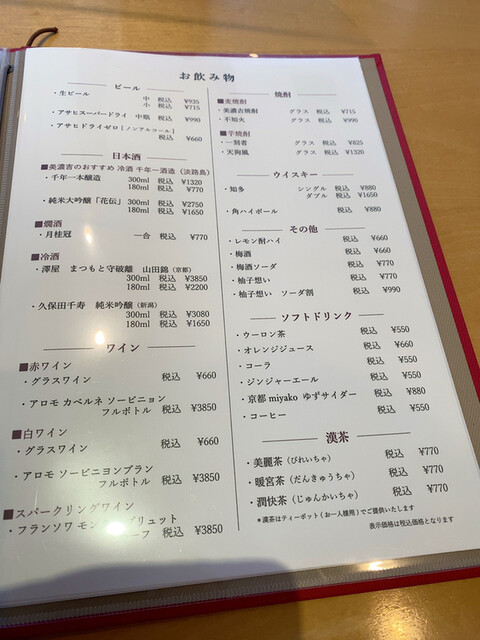 お飲み物
ビール
・生ビール 中 税込 ¥935
小 税込 ¥715
・アサヒスーパードライ 中瓶 税込 ¥990
・アサヒドライゼロ [ノンアルコール]
税込 ¥660
日本酒
■美濃吉のおすすめ 冷酒 千年一酒造 (淡路島)
・千年一本醸造 300ml 税込 ¥1320
180ml 税込 ¥770
・純米大吟醸「花伝」 300ml 税込 ¥2750
180ml 税込 ¥1650
■燗酒
・月桂冠 一合 税込 ¥770
■冷酒
・澤屋 まつもと守破離 山田錦 (京都)
300ml 税込 ¥3850
180ml 税込 ¥2200
・久保田千寿 純米吟醸 (新潟)
300ml 税込 ¥3080
180ml 税込 ¥1650
ワイン
■赤ワイン
・グラスワイン 税込 ¥660
・アロモ カベルネ ソービニョン
フルボトル 税込 ¥3850
■白ワイン
・グラスワイン 税込 ¥660
・アロモ ソービニヨンブラン
フルボトル 税込 ¥3850
■スパークリングワイン
・フランソワ モン ブリュット
ーフ 税込 ¥3850
焼酎
■麦焼酎
・美濃吉焼酎 グラス 税込 ¥715
・不知火 グラス 税込 ¥990
■芋焼酎
・一刻者 グラス 税込 ¥825
・天狗風 グラス 税込 ¥1320
ウイスキー
・知多 シングル 税込 ¥880
ダブル 税込 ¥1650
・角ハイボール 税込 ¥880
その他
・レモン酎ハイ 税込 ¥660
・梅酒 税込 ¥660
・梅酒ソーダ 税込 ¥770
・柚子想い 税込 ¥770
・柚子想い ソーダ割 税込 ¥990
ソフトドリンク
・ウーロン茶 税込 ¥550
・オレンジジュース 税込 ¥660
・コーラ 税込 ¥550
・ジンジャーエール 税込 ¥550
・京都 miyako ゆずサイダー 税込 ¥880
・コーヒー 税込 ¥550
漢茶
・美麗茶 (びれいちゃ) 税込 ¥770
・暖宮茶 (だんきゅうちゃ) 税込 ¥770
・潤快茶 (じゅんかいちゃ) 税込 ¥770
*漢茶はティーポット (お一人様用) でご提供いたします
表示価格は税込価格となります